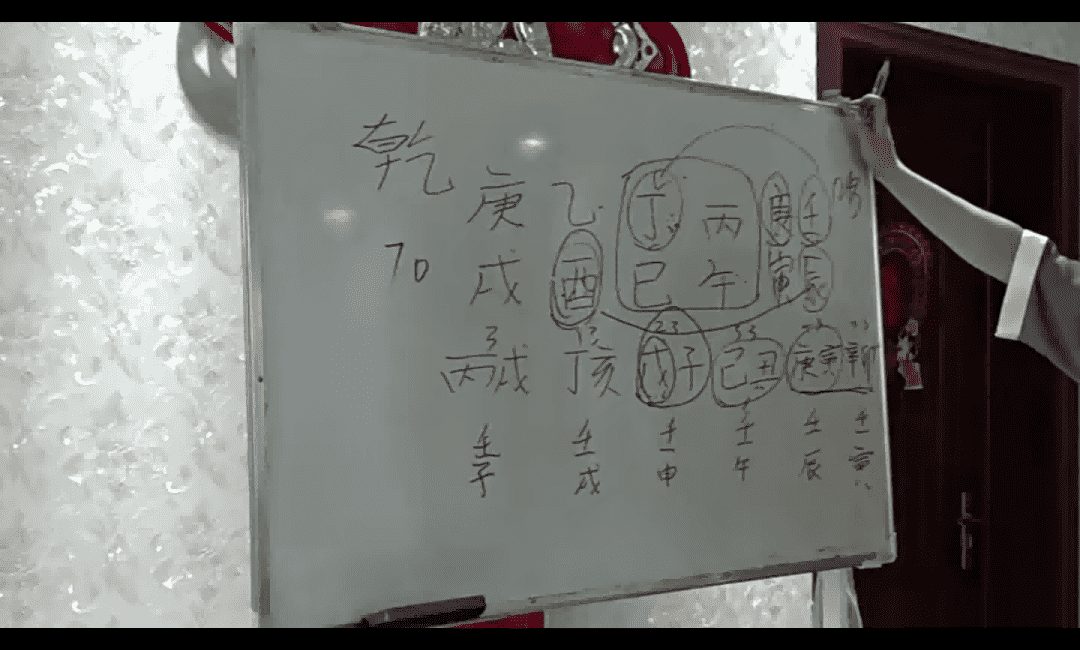 乾 庚 乙 丁 丙 壬
70 戌 酉 巳 午 寅 辰
3 13 23 33
丙戌 丁亥 戊子 己丑 庚寅 辛
壬 壬 壬 壬 壬 壬
子 戌 申 午 辰 寅